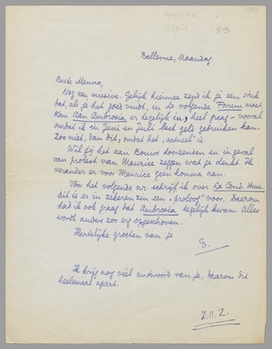 Bellevue, Maandag.
Beste Menno,
Nog een missive. Gelijk hiermee zend ik je een stuk
dat, als je het goed vindt, in de volgende Forum moet.
Kan Aan Ambrosia er tegelijk in, heel graag – vooral
omdat ik in Juni en Juli best geld gebruiken kan.
Zoo niet, dan dit, omdat het "actueel" is.
Wil jij het aan Bouws doorzenden en in geval
van protest van Maurice zeggen wat je denkt. Ik
verander er voor Maurice geen komma aan.
Voor het volgende nr. schrijf ik over La Cond. Hum.
Dit is er in zekeren zin een "proloog" voor. Daarom
had ik ook graag dat Ambrosia tegelijk kwam. Alles
wordt anders zoo erg opgeschoven.
Hartelijke groeten van je
E.
Ik krijg nog veel antwoord van je, daarom dit
heelemaal apart.
Z.O.Z.